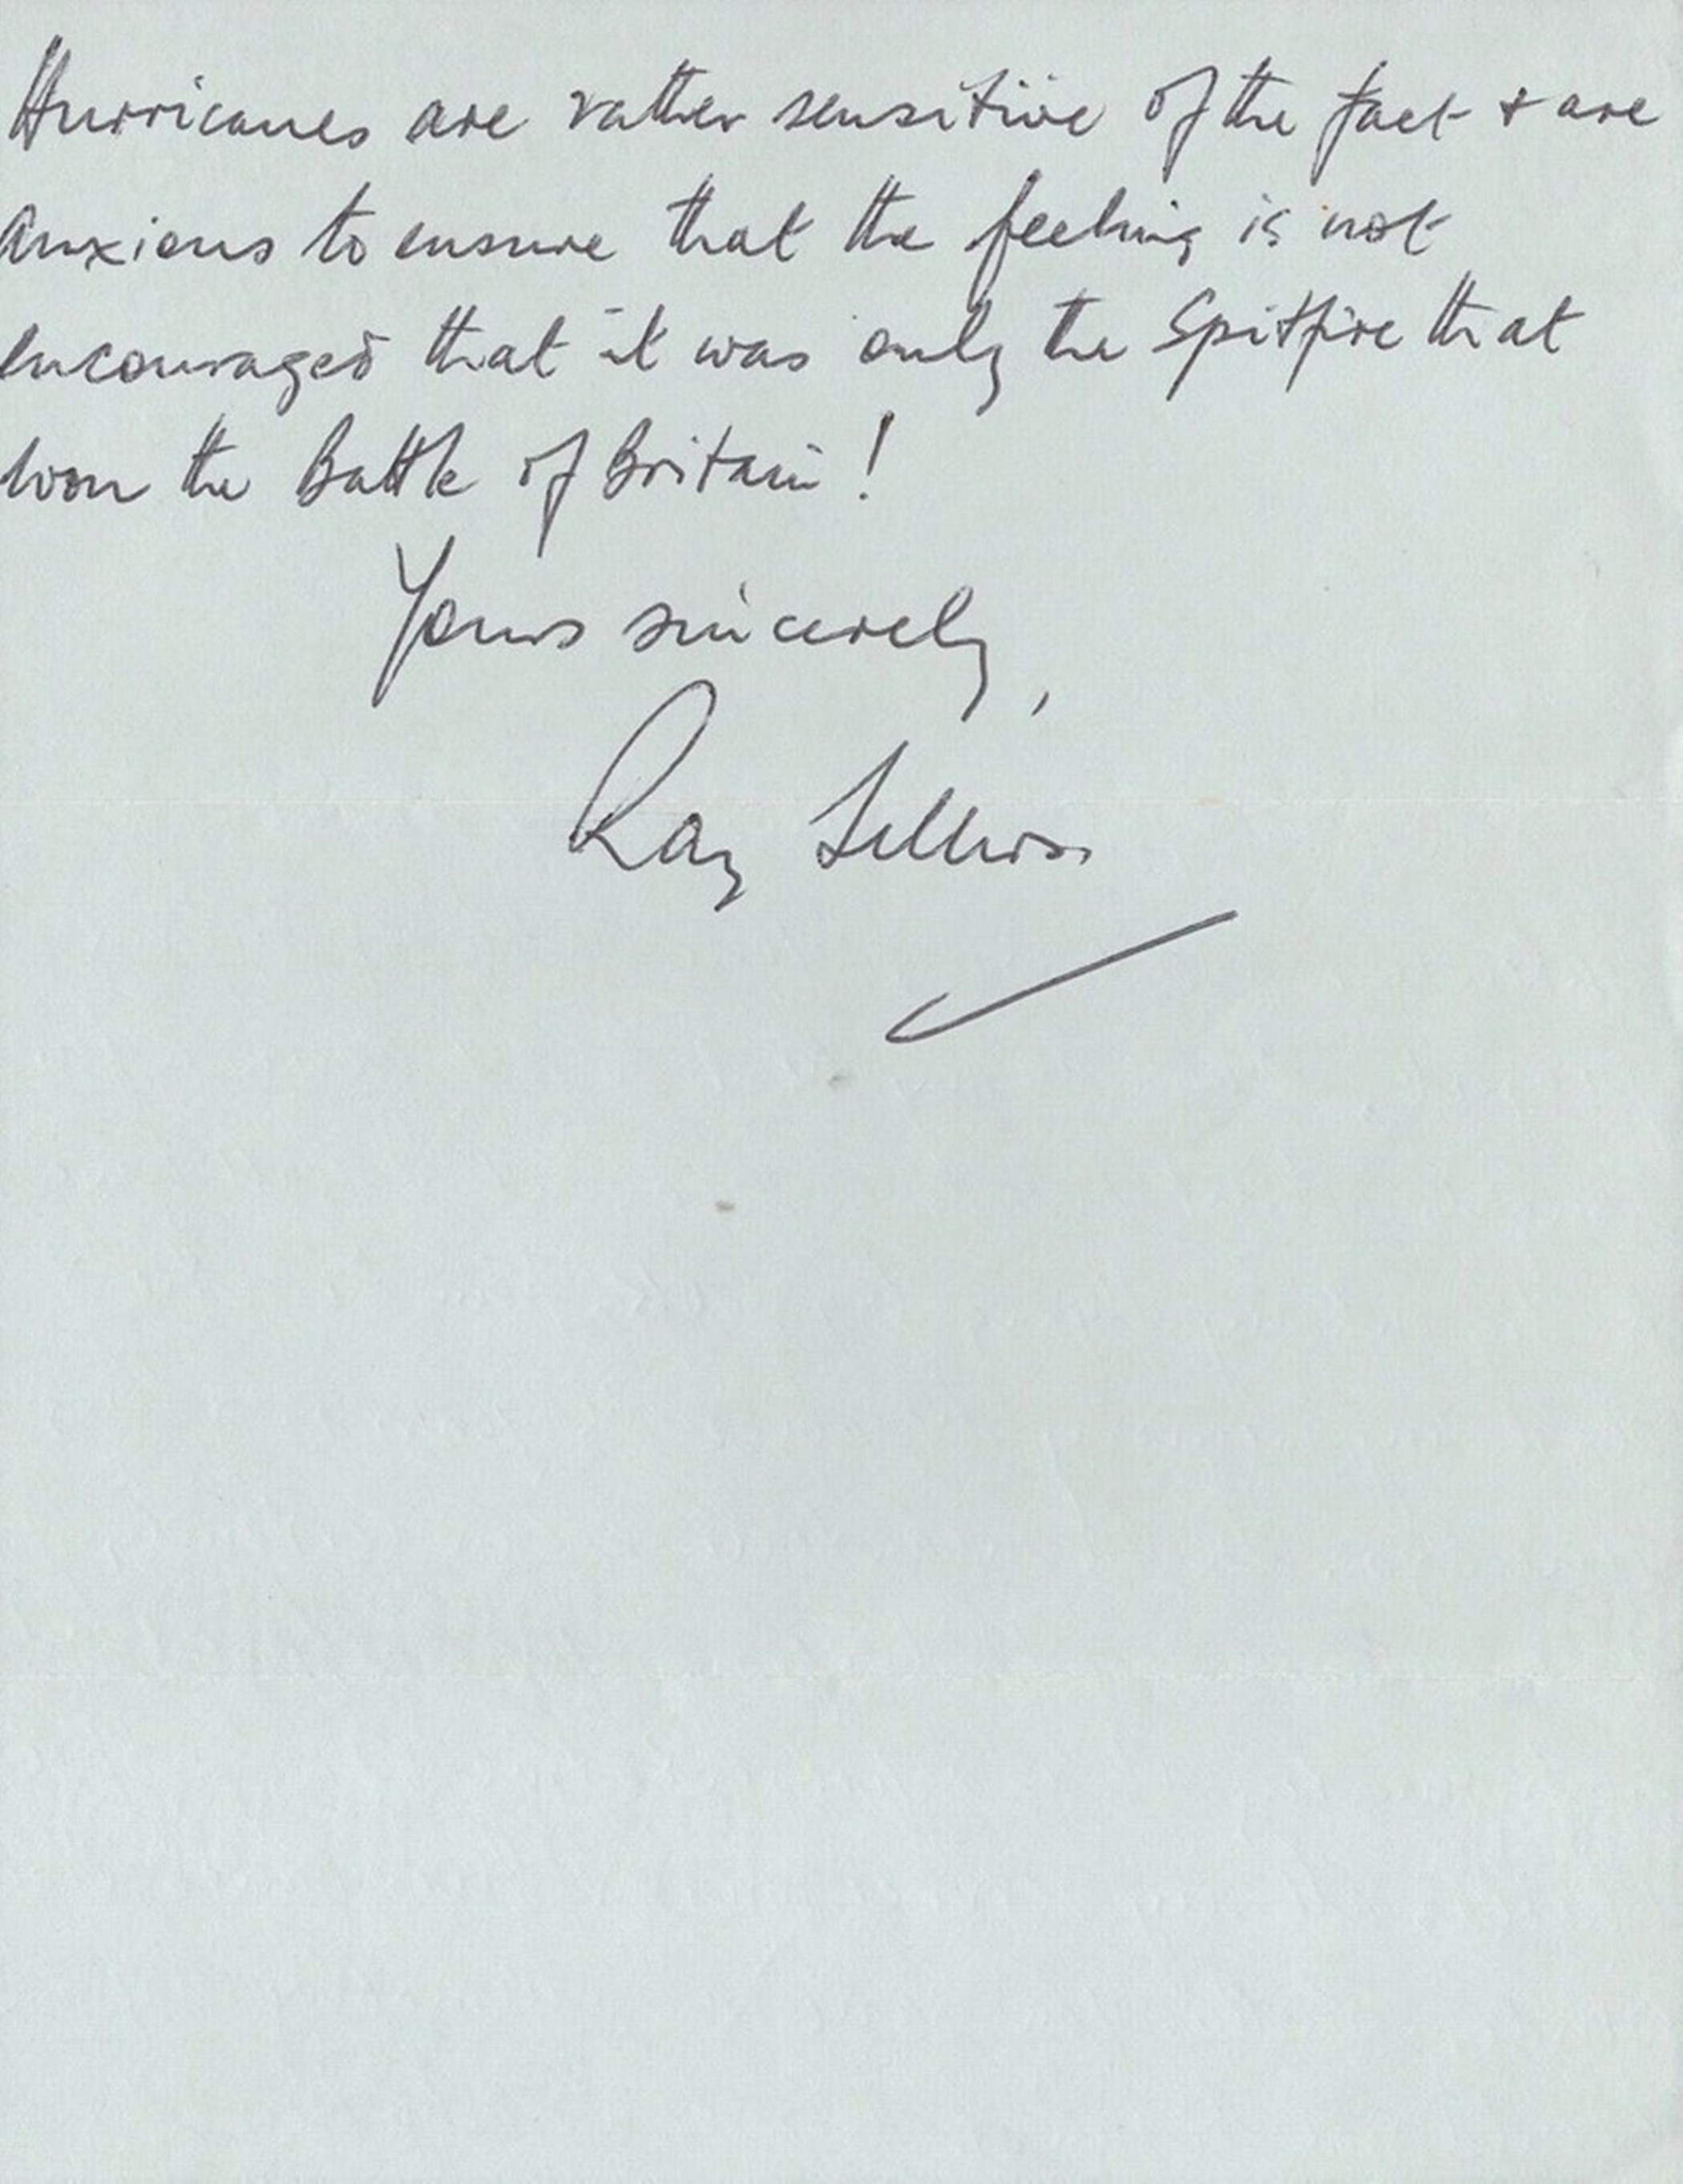 Hurricanes are rather sensitive of the fact + are
anxious to ensure that the feeling is not
encouraged that it was only the Spitfire that
won the Battle of Britain!
Yours sincerely,
Ray Sellers.